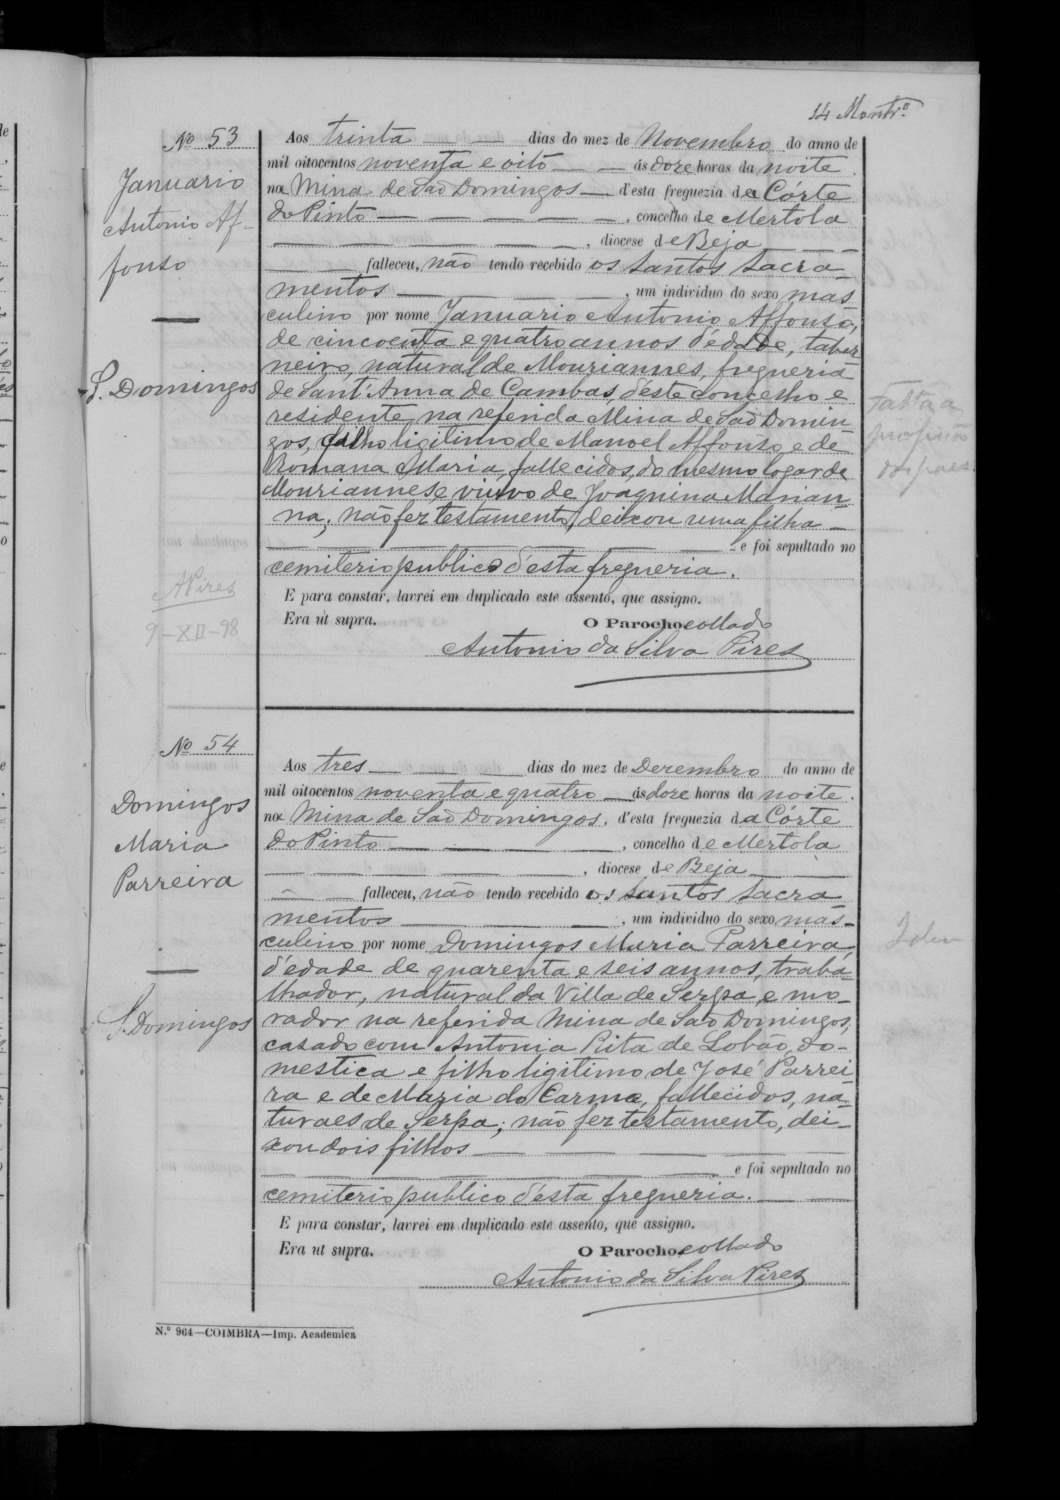 14 Montr.º
Nº 53
Januario
Antonio Af-
fonso
S. Domingos
APires
9-XII-98
Aos trinta dias do mez de Novembro do anno de
mil oitocentos noventa e oito ás doze horas da noite.
na Mina de São Domingos d'esta freguezia da Córte
do Pinto, concelho de Mertola
, diocese de Beja
falleceu, não tendo recebido os santos sacra-
mentos, um individuo do sexo mas-
culino por nome Januario Antonio Affonso,
de cincoenta e quatro annos d'edade, taber
neiro, natural de Mouriannes, freguezia
de Sant'Anna de Cambas, d'este concelho e
residente na referida Mina de São Domin-
gos, filho ligitimo de Manoel Affonso, e de
Romana Maria, fallecidos, do mesmo logar de
Mouriannes, e viuvo de Joaquina Marian-
na; não fez testamento, deixou uma filha
e foi sepultado no
cemiterio publico d'esta freguezia.
E para constar, lavrei em duplicado este assento, que assigno.
Era ut supra. O Parocho collado
Antonio da Silva Pires
Falta a
profissão
dos paes.
Nº 54
Domingos
Maria
Parreira
S. Domingos
Aos tres dias do mez de Dezembro do anno de
mil oitocentos noventa e quatro ás doze horas da noite.
na Mina de São Domingos, d'esta freguezia da Córte
do Pinto, concelho de Mertola
, diocese de Beja
falleceu, não tendo recebido os santos sacra
mentos, um individuo do sexo mas-
culino por nome Domingos Maria Parreira,
d'edade de quarenta e seis annos, traba-
lhador, natural da Villa de Serpa, e mo-
rador na referida Mina de São Domingos,
casado com Antonia Rita de Lobão, do-
mestica e filho ligitimo de José Parrei-
ra e de Maria do Carmo, fallecidos, na-
turaes de Serpa; não fez testamento, dei-
xou dois filhos
e foi sepultado no
cemiterio publico d'esta freguezia.
E para constar, lavrei em duplicado este assento, que assigno.
Era ut supra. O Parocho collado
Antonio da Silva Pires
Idem
N.º 964—COIMBRA—Imp. Academica